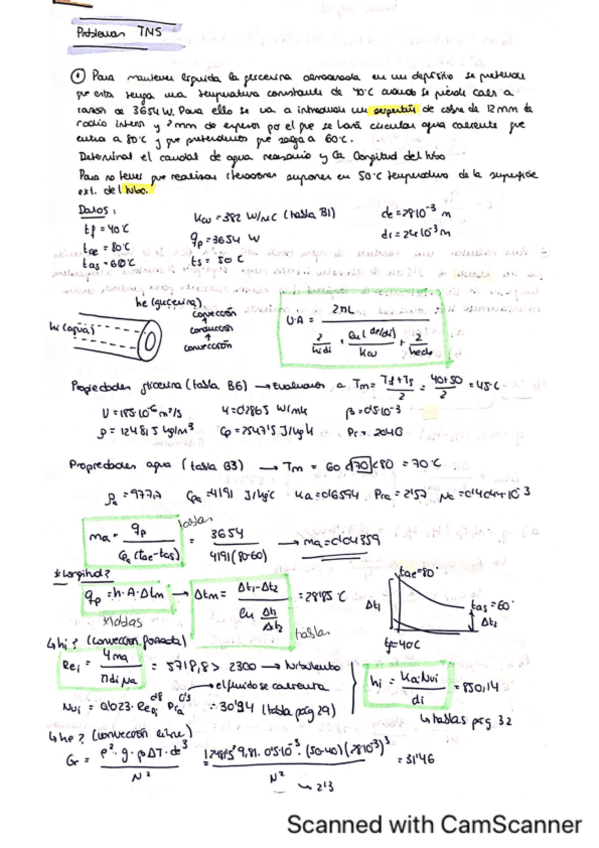 Problemas TM5
① Para mantener líquida la glicerina almacenada en un depósito se pretende
que esta tenga una temperatura constante de 40°C cuando se pierde calor a
razón de 3654 W. Para ello se va a introducir un serpentín de cobre de 12mm de
radio interno y 2mm de espesor por el que se hará circular agua caliente que
entra a 80°C y que pretendemos que salga a 60°C.
Determinal el caudal de agua necesario y la longitud del tubo
Para no tener que realizar iteraciones suponer en 50°C temperatura de la superficie
ext. del tubo.
Datos:
tf = 40°C
tae = 80°C
tas = 60°C
Kcu = 382 W/mC (tabla B1)
qp = 3654 W
ts = 50°C
de = 28·10⁻³ m
di = 24·10⁻³ m
he (glicerina)
hi (agua)
convección
↑
conducción
↑
convección
U·A = 2πL / (2/hidi + Ln(de/di)/Kcu + 2/hede)
Propiedades glicerina (tabla B6) → Evaluación a Tm = (Tf+Ts)/2 = (40+50)/2 = 45°C
υ = 185·10⁻⁶ m²/s K = 0'2865 W/mk β = 0'5·10⁻³
ρ = 1248'5 kg/m³ Cp = 2547'5 J/kg k Pr = 2040
Propiedades agua (tabla B3) → Tm = 60 < 70 < 80 = 70°C
ρa = 977'7 Cpa = 4191 J/kg°C Ka = 0'6594 Pra = 2'57 μa = 0'404·10⁻³
ma = qp / Cpa (tae-tas) = 3654 / 4191(80-60) → ma = 0'04359
tablas
* Longitud?
qp = h·A·Δtm → Δtm = (Δt1-Δt2) / ln(Δt1/Δt2) = 28'85°C
tablas
tablas
tae = 80°
tas = 60°
Δt1
Δt2
tf = 40°C
↳ hi? (convección forzada)
Rei = 4ma / πdiμa = 5718,8 > 2300 → turbulento
→ el fluido se calienta
Nui = 0'023·Rei^0'8 Pra^0'3 = 30'94 (tabla pág 29)
hi = Ka·Nui / di = 850,14
↳ tablas pág 32
↳ he? (convección libre)
Gr = ρ²·g·β·ΔT·de³ / μ² = 1248'5² 9,81·0'5·10⁻³·(50-40)(28·10⁻³)³ / μ² = 31'46
↳ 2'13
Scanned with CamScanner